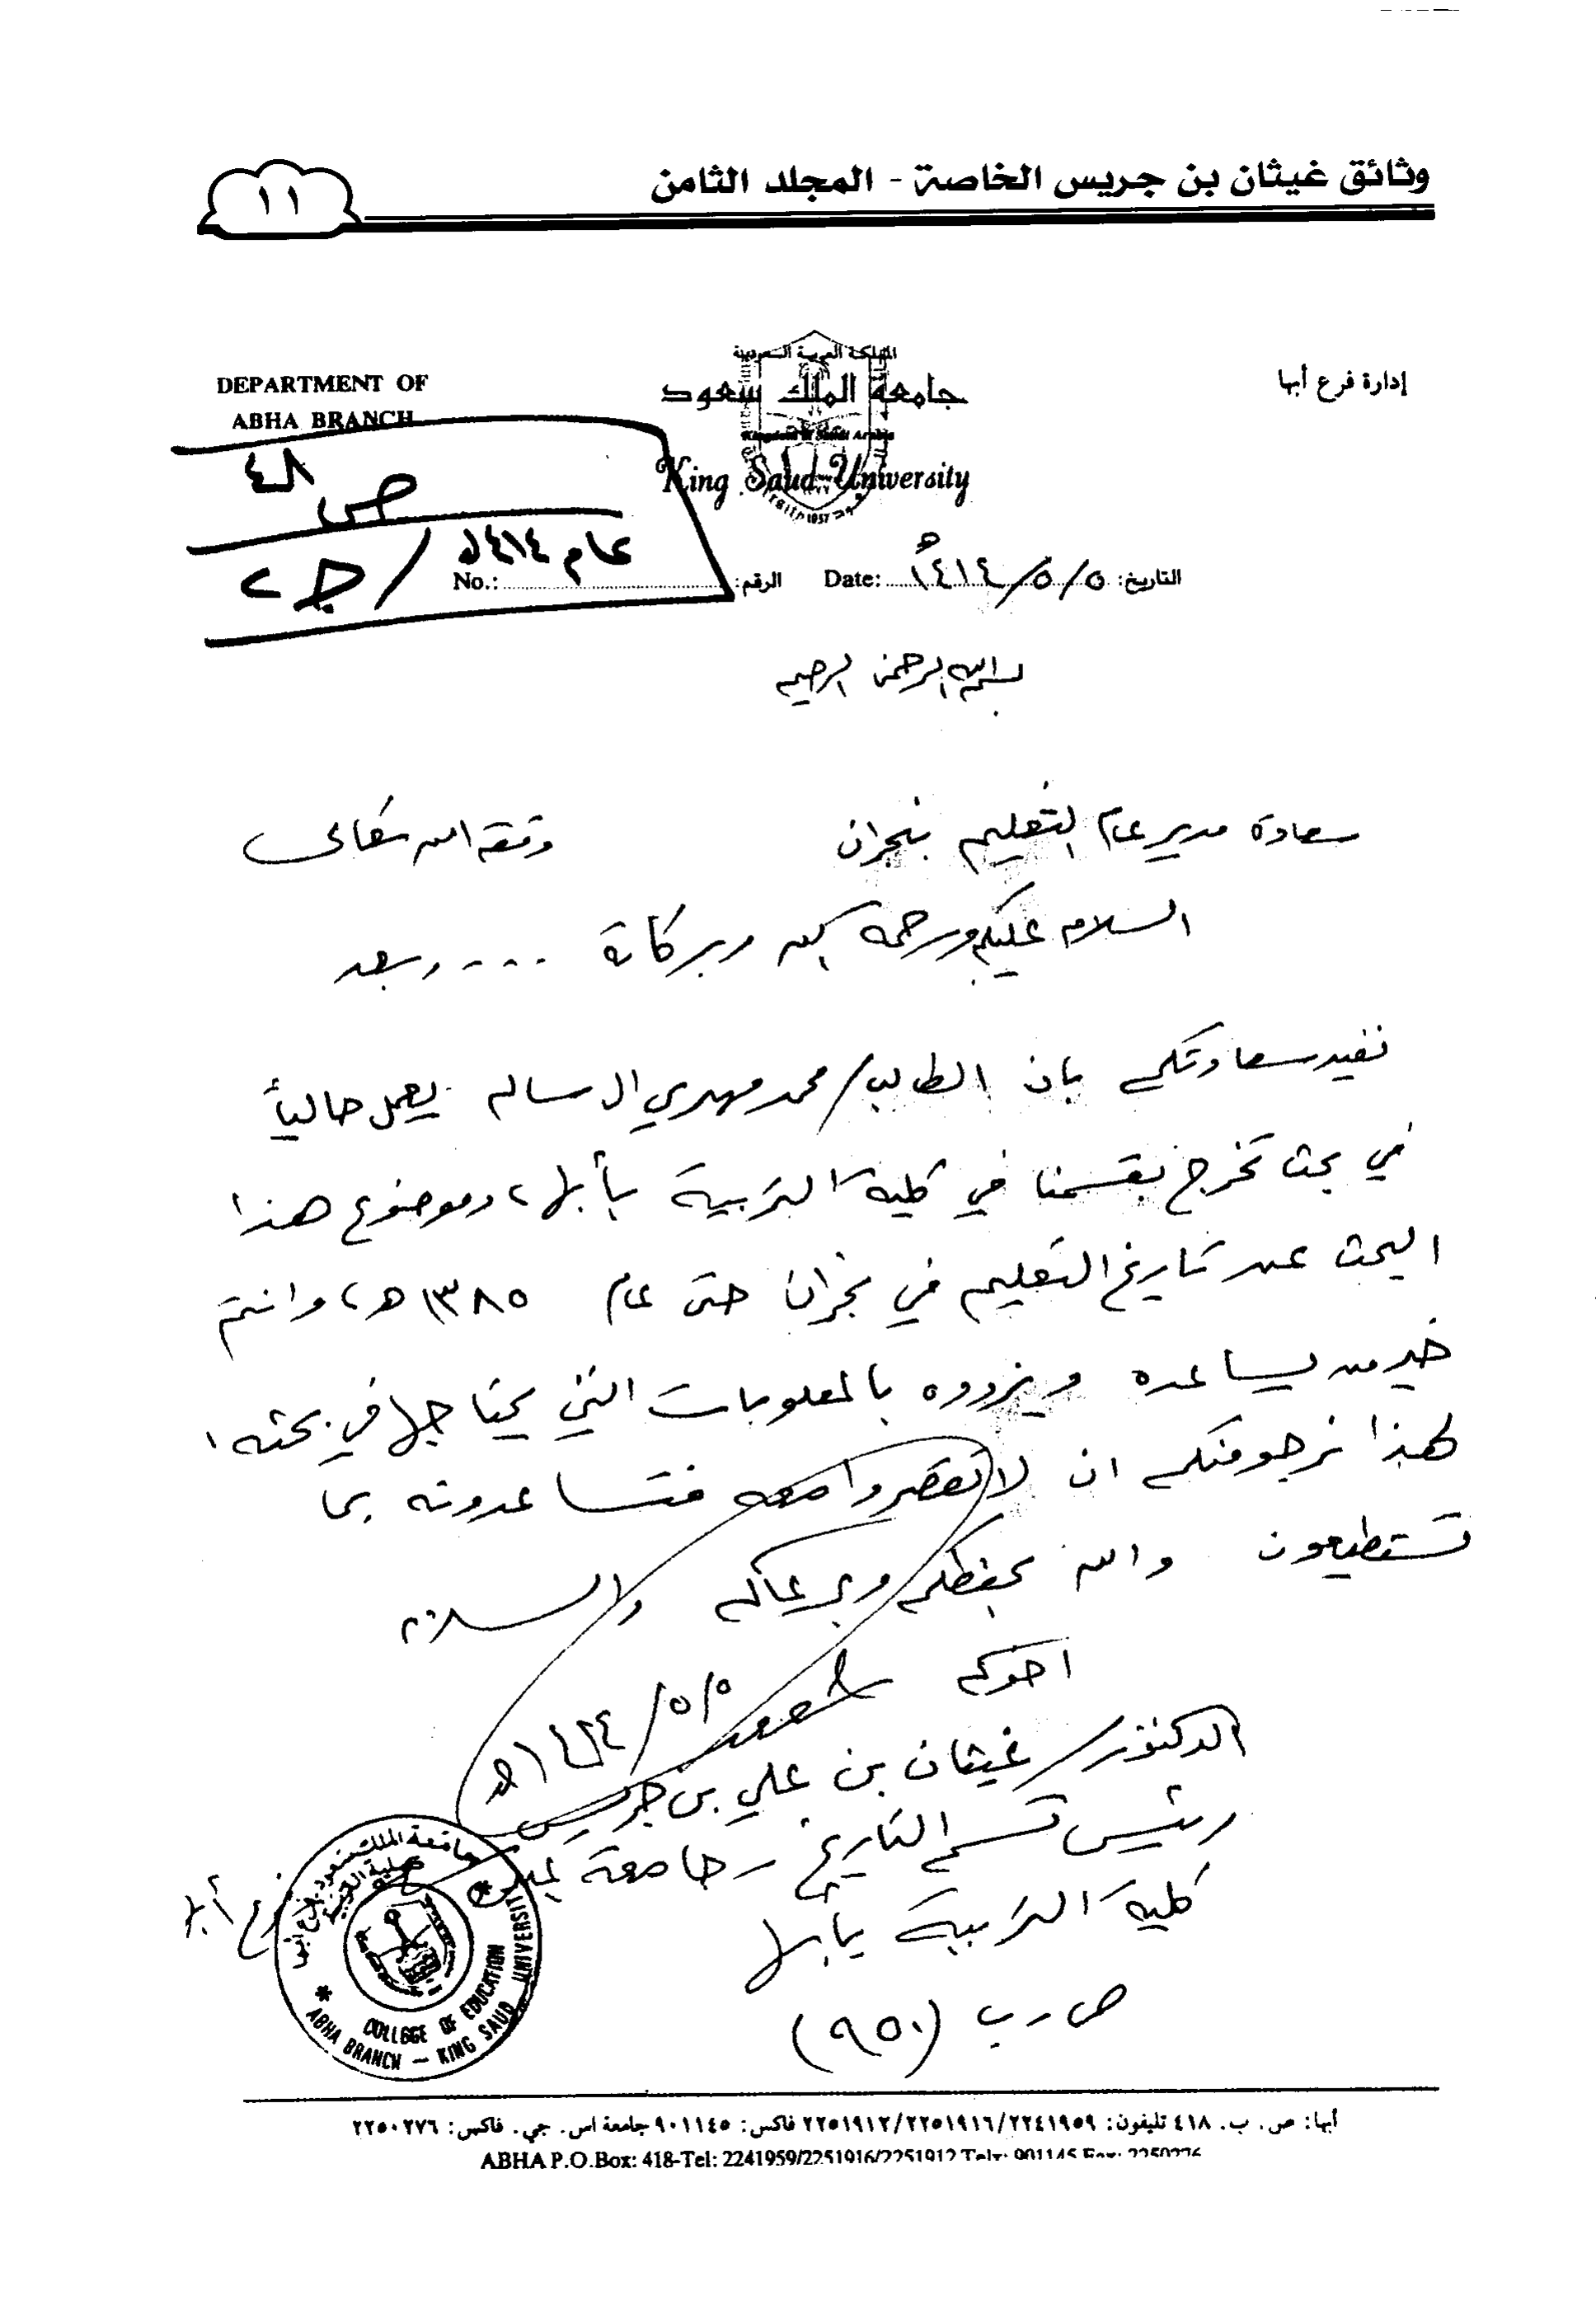 وثائق غيثان بن جريس الخاصة - المجلد الثامن
١١
إدارة فرع أبها
المملكة العربية السعودية
جامعة الملك سعود
Kingdom of Saudi Arabia
King Saud University
DEPARTMENT OF
ABHA BRANCH
ص ٤٨
عام ١٤١٤هـ / ج ٢
التاريخ: ٥/٥/١٤١٤هـ Date:
الرقم: No.:
بسم الله الرحمن الرحيم
سعادة مدير عام التعليم بنجران وفقه الله تعالى
السلام عليكم ورحمة الله وبركاته .... وبعد
نفيد سعادتكم بان الطالب/ محمد مهدي ال سالم يعمل حالياً
في بحث تخرج بقسمنا في كلية التربية بأبها، وموضوع هذا
البحث عن تاريخ التعليم في نجران حتى عام ١٣٨٥هـ، وانتم
خير من يساعده ويزوده بالمعلومات التي يحتاجها في بحثه،
لهذا نرجو منكم ان لا تقصروا معه فتساعدونه بما
تستطيعون والله يحفظكم ويرعاكم والسلام
اخوكم
٥/٥/١٤١٤هـ
الدكتور/ غيثان بن علي بن جريس
رئيس قسم التاريخ - جامعة الملك سعود فرع أبها
كلية التربية بأبها
ص . ب (٩٥٠)
جامعة الملك سعود فرع أبها
كلية التربية
COLLEGE OF EDUCATION
ABHA BRANCH - KING SAUD UNIVERSITY
أبها: ص. ب. ٤١٨ تليفون: ٢٢٥١٩١٢/٢٢٥١٩١٦/٢٢٤١٩٥٩ فاكس: ٩٠١١٤٥ جامعة اس. جي. فاكس: ٢٢٥٠٢٧٦
ABHA P.O.Box: 418-Tel: 2241959/2251916/2251912 Telx: 901145 Fax: 2250276